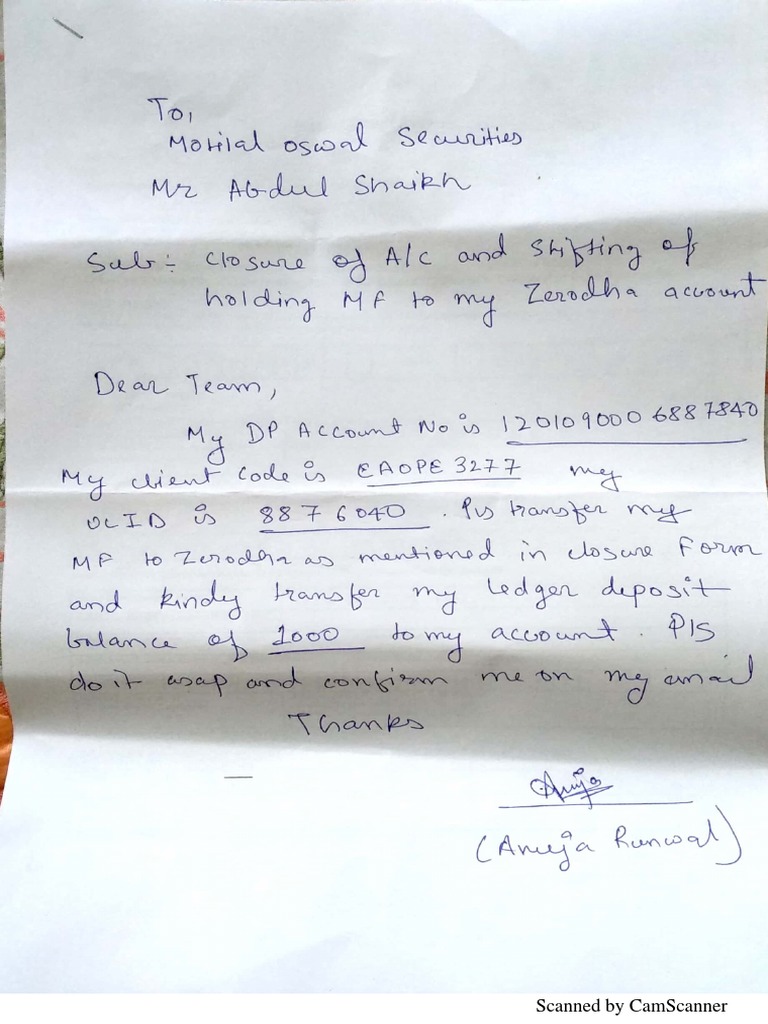 To,
Motilal Oswal Securities
Mr Abdul Shaikh
Sub:- Closure of A/C and Shifting of
holding MF to my Zerodha account
Dear Team,
My DP Account No is 120109000 6887840
My client code is EAOPE 3277 my
UCID is 8876040 . Pls transfer my
MF to Zerodha as mentioned in closure Form
and kindy transfer my ledger deposit
balance of 1000 to my account . Pls
do it asap and confirm me on my email
Thanks
Anuja
(Anuja Runwal)
Scanned by CamScanner